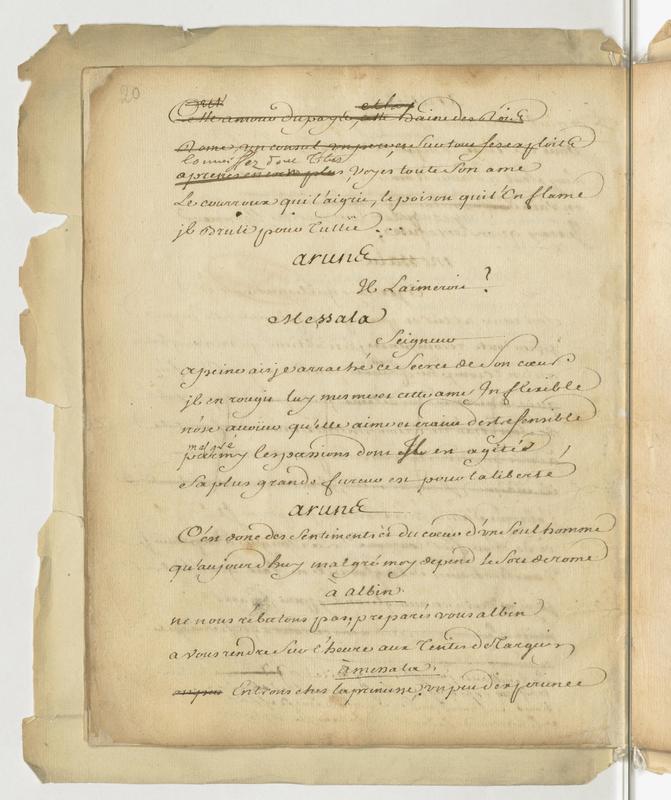 20
cette amour du pays, cette haine des Rois
et la
Rome, un consul, un pere, et sur tous ses exploits
connoissez donc Titus
apprenés encor plus, voyés toute son ame
Le courroux qui l'aigrie, le poison quil'en flame
jl Brule pour Tullie...
arunS
Il L'aimeroit ?
Messala
Seigneur
apeine aisje arraché ce Secret de Son cœur
jl en rougit luy mesme et cette ame Inflexible
n'ose avouer qu'elle aime et craind d'estre sensible
malgré
parmy les passions dont Il en agité
Sa plus grande fureur est pour la liberté
arunS
C'en donc des Sentiments et du cœur d'un Seul homme
qu'aujourdhuy malgré moy depend le Sort de rome
à albin
ne nous rébutons pas, preparés vous albin
a vous rendre Sur l'heure aux Tentes de Tarquin
à messala.
au peu Entrons chez la princesse, un peu d'experience